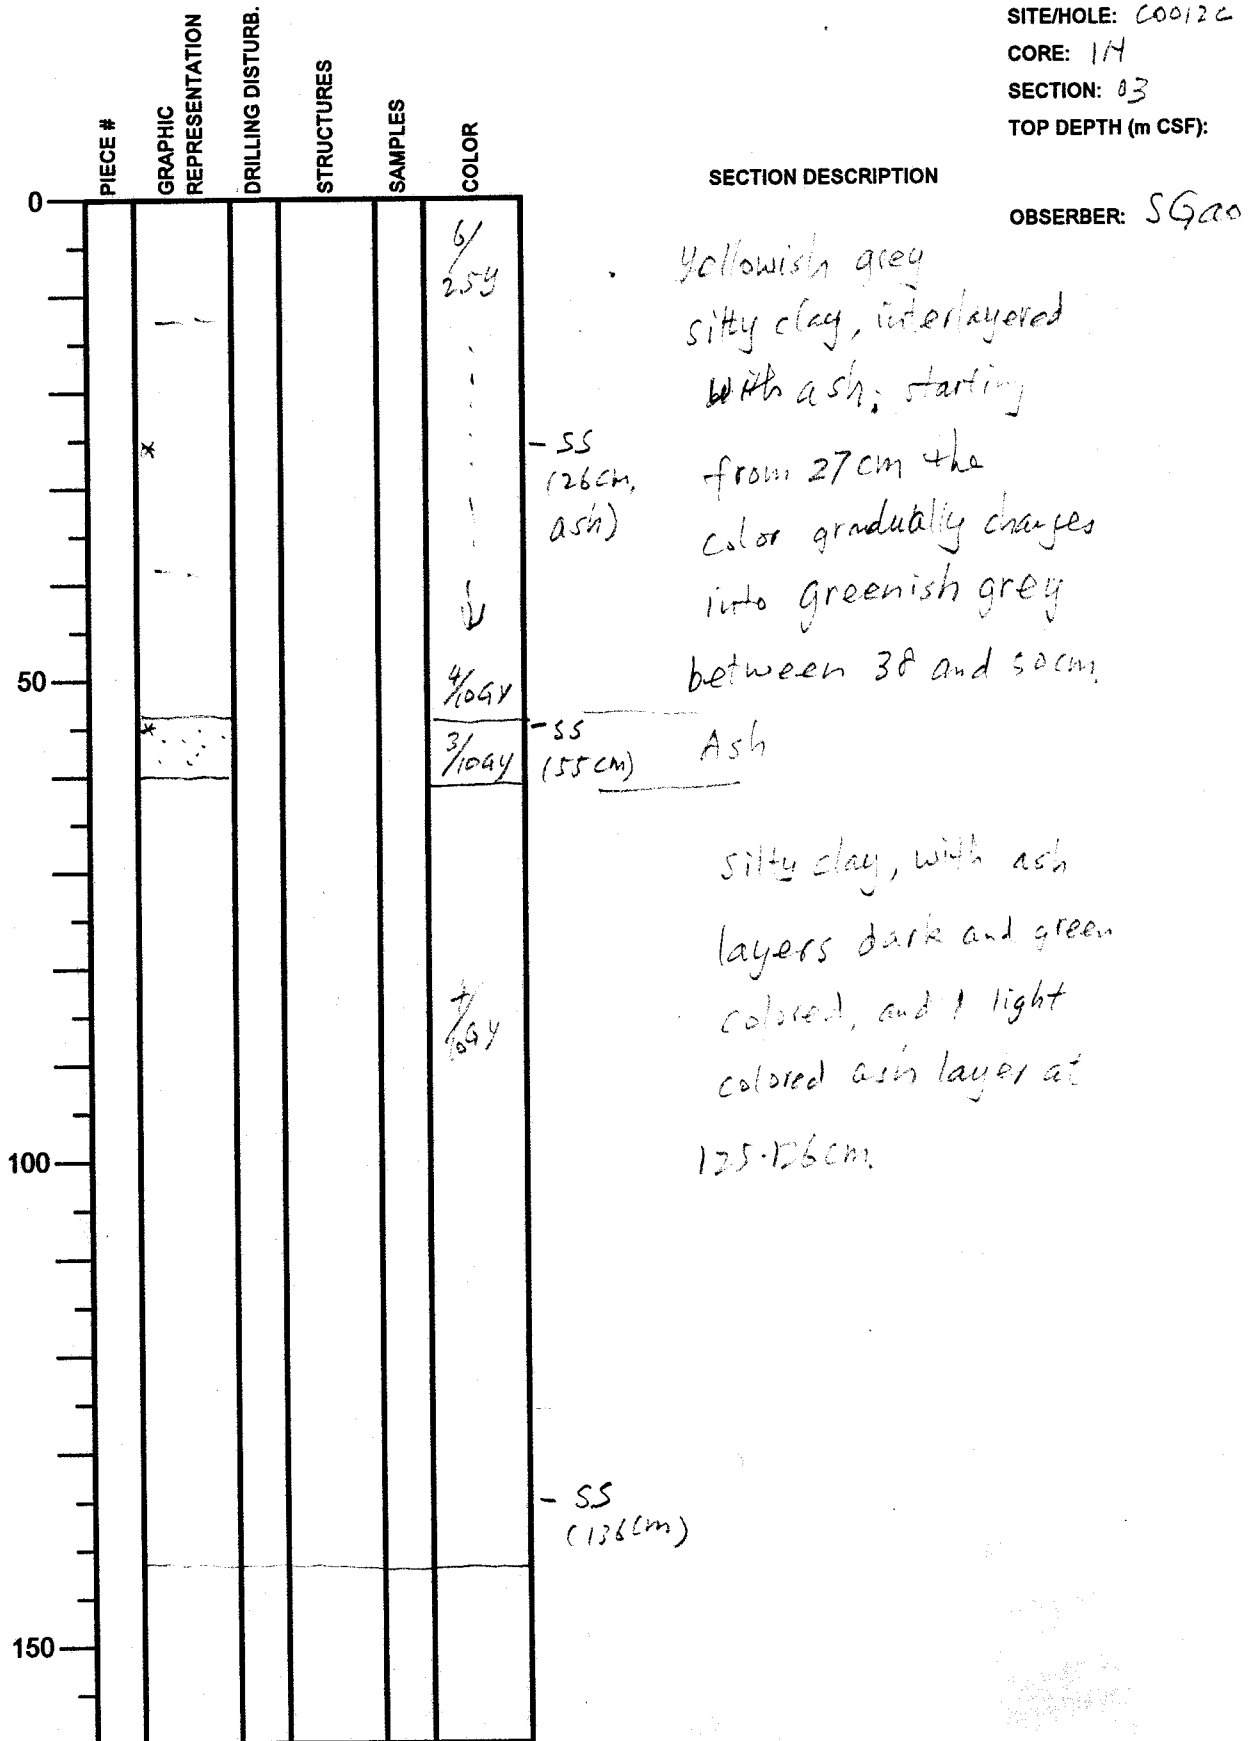 SITE/HOLE: C0012C
CORE: 1H
SECTION: 03
TOP DEPTH (m CSF):
OBSERBER: SGao
PIECE #
GRAPHIC REPRESENTATION
DRILLING DISTURB.
STRUCTURES
SAMPLES
COLOR
SECTION DESCRIPTION
0
50
100
150
6/
2.5y
4/10GY
3/10GY
4/
10GY
- SS
(26cm,
ash)
- SS
(55cm)
- SS
(136cm)
Yellowish grey
silty clay, interlayered
with ash; starting
from 27cm the
color gradually changes
into greenish grey
between 38 and 50cm.
Ash
silty clay, with ash
layers dark and green
colored, and 1 light
colored ash layer at
125-126cm.